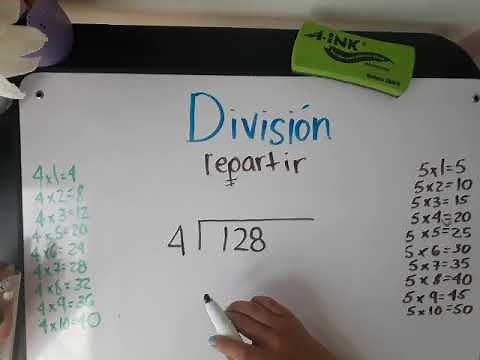 A-INK
División
repartir
4 x 1 = 4
4 x 2 = 8
4 x 3 = 12
4 x 5 = 20
4 x 6 = 24
4 x 7 = 28
4 x 8 = 32
4 x 9 = 36
4 x 10 = 40
4 128
5 x 1 = 5
5 x 2 = 10
5 x 3 = 15
5 x 4 = 20
5 x 5 = 25
5 x 6 = 30
5 x 7 = 35
5 x 8 = 40
5 x 9 = 45
5 x 10 = 50